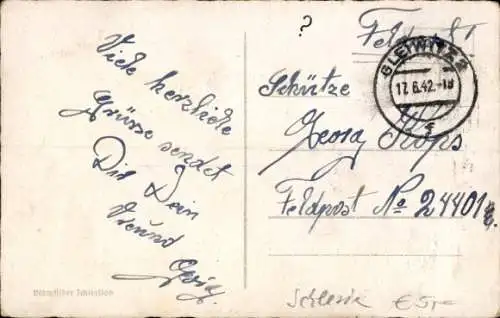 Viele herzliche
Grüsse sendet
Dir Dein
Freund Georg.
?
Feldpost
GLEIWITZ 2
17.6.42.-18
Schütze
Georg
Feldpost No 24401
Schlesien € 5,-